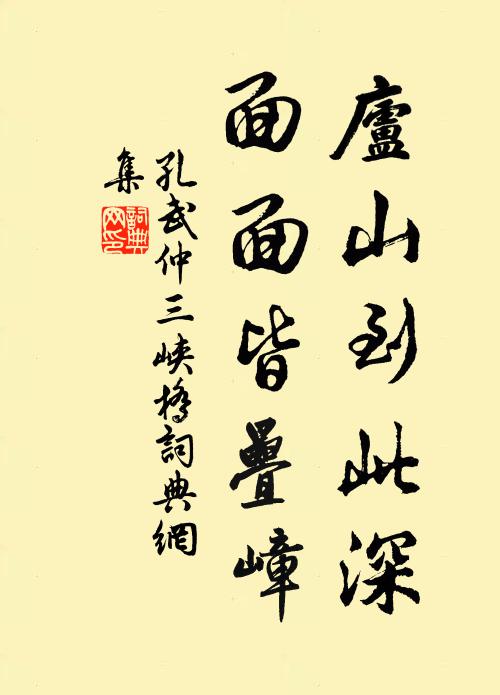 廬山到此深
面面皆疊嶂
孔武仲三峽橋詞典網
集
詞典
网印